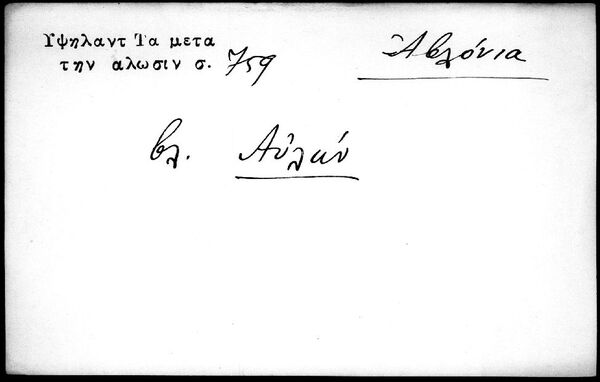 Υψηλαντ Τα μετα
την αλωσιν σ. 759
Αβλόνια
βλ. Αὐλών